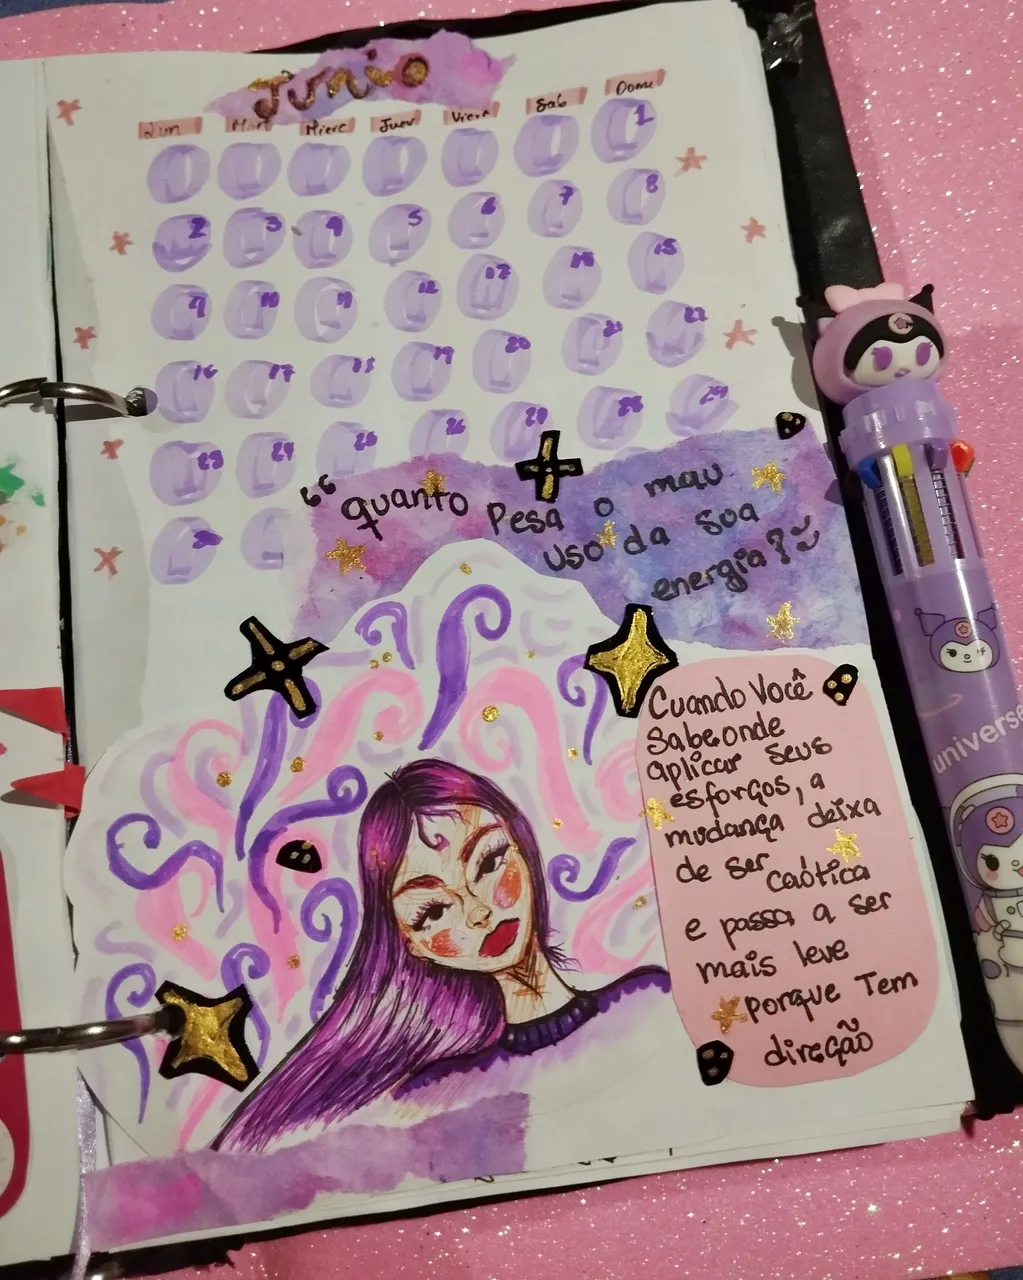 Junio
Lun Mart Mierc Juev Viern Sab Dom
1
2 3 4 5 6 7 8
9 10 11 12 13 14 15
16 17 18 19 20 21 22
23 24 25 26 28 29
30
“quanto Pesa o mau
uso da sua
energia?
Cuando Você
Sabe onde
aplicar seus
esforços, a
mudança deixa
de ser caótica
e passa a ser
mais leve
porque Tem
direção
universe